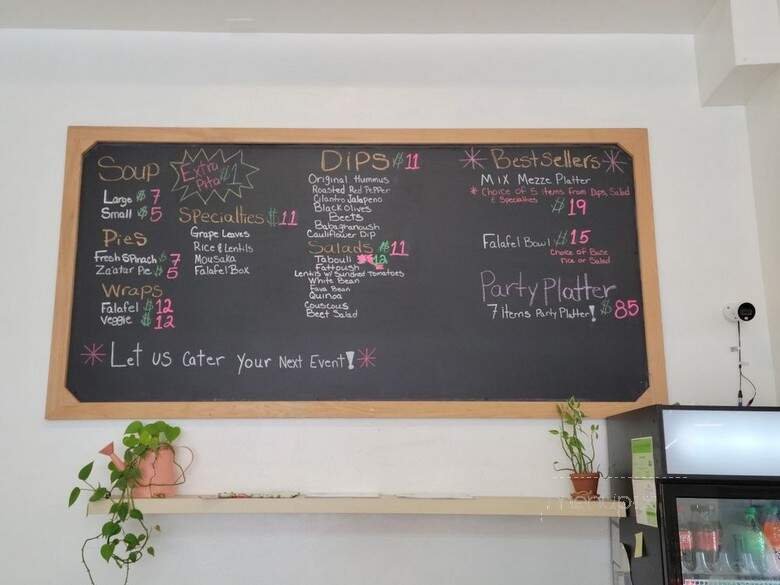 Soup
Large $7
Small $5
Extra Pita $1
Pies
Fresh Spinach $7
Za'atar Pie $5
Wraps
Falafel $12
Veggie $12
Specialties $11
Grape Leaves
Rice & Lentils
Mousaka
Falafel Box
Dips $11
Original Hummus
Roasted Red Pepper
Cilantro Jalapeno
Black Olives
Beets
Babaghanoush
Cauliflower Dip
Salads $11
Tabouli 12
Fattoush
Lentils w/ Sundried Tomatoes
White Bean
Fava Bean
Quinoa
Couscous
Beet Salad
* Bestsellers *
Mix Mezze Platter
* Choice of 5 items from Dips, Salad
& Specialties
$19
Falafel Bowl $15
Choice of Base
Rice or Salad
Party Platter
7 Items Party Platter! $85
* Let us cater your Next Event! *